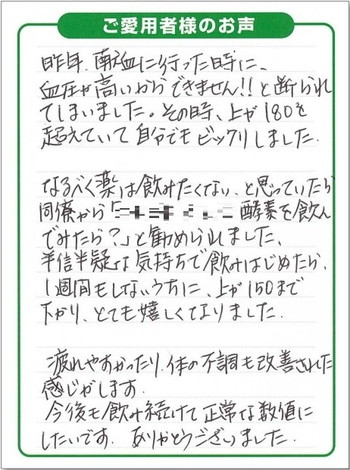 ご愛用者様のお声
昨年、献血に行った時に、
血圧が高いからできません!!と断られ
てしまいました。その時、上が180を
超えていて自分でもビックリしました。
なるべく薬は飲みたくない、と思っていたら
同僚から「酵素を飲ん
でみたら?」と勧められました。
半信半疑な気持ちで飲みはじめたら、
1週間もしないうちに、上が150まで
下がり、とても嬉しくなりました。
疲れやすかったり、体の不調も改善された
感じがします。
今後も飲み続けて正常な数値に
したいです。ありがとうございました。